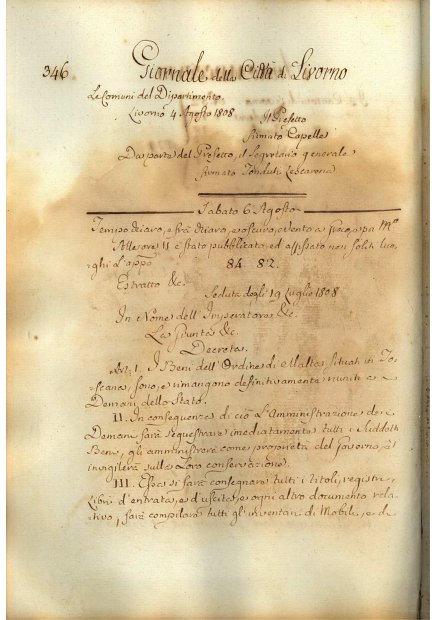 346
Giornale della Città di Livorno
Le Comuni del Dipartimento.
Livorno 4 Agosto 1808
Il Prefetto
Firmato Capelle
Da parte del Prefetto, il Segretario generale
Firmato Fonduti Lescarena
Sabato 6 Agosto
Tempo chiaro, e frà chiaro, e oscuro, e Vento a
Alle ore 11 è stato pubblicata, ed affissato nei soliti luo„
ghi l'app.
84 82.
Estratto &c.
Seduta degli 19 Luglio 1808
In Nome dell'Imperatore &c.
La Giunta &c.
Decreta.
Art. I. I Beni dell'Ordine di Malta situati in To„
scana, sono, e rimangono definitivamente riuniti a i
Demani dello Stato.
II. In conseguenza di ciò L'Amministrazione de i
Demani farà sequestrare imediatamente tutti i suddetti
Beni, gli amministrerà come proprietà del Governo, e
invigilerà sulla Loro conservazione.
III. Essa si farà consegnare tutti i titoli, registri,
Libri d'entrata, e d'uscita, e ogni altro documento rela„
tivo, farà compilare tutti gl'inventari di Mobili, e di